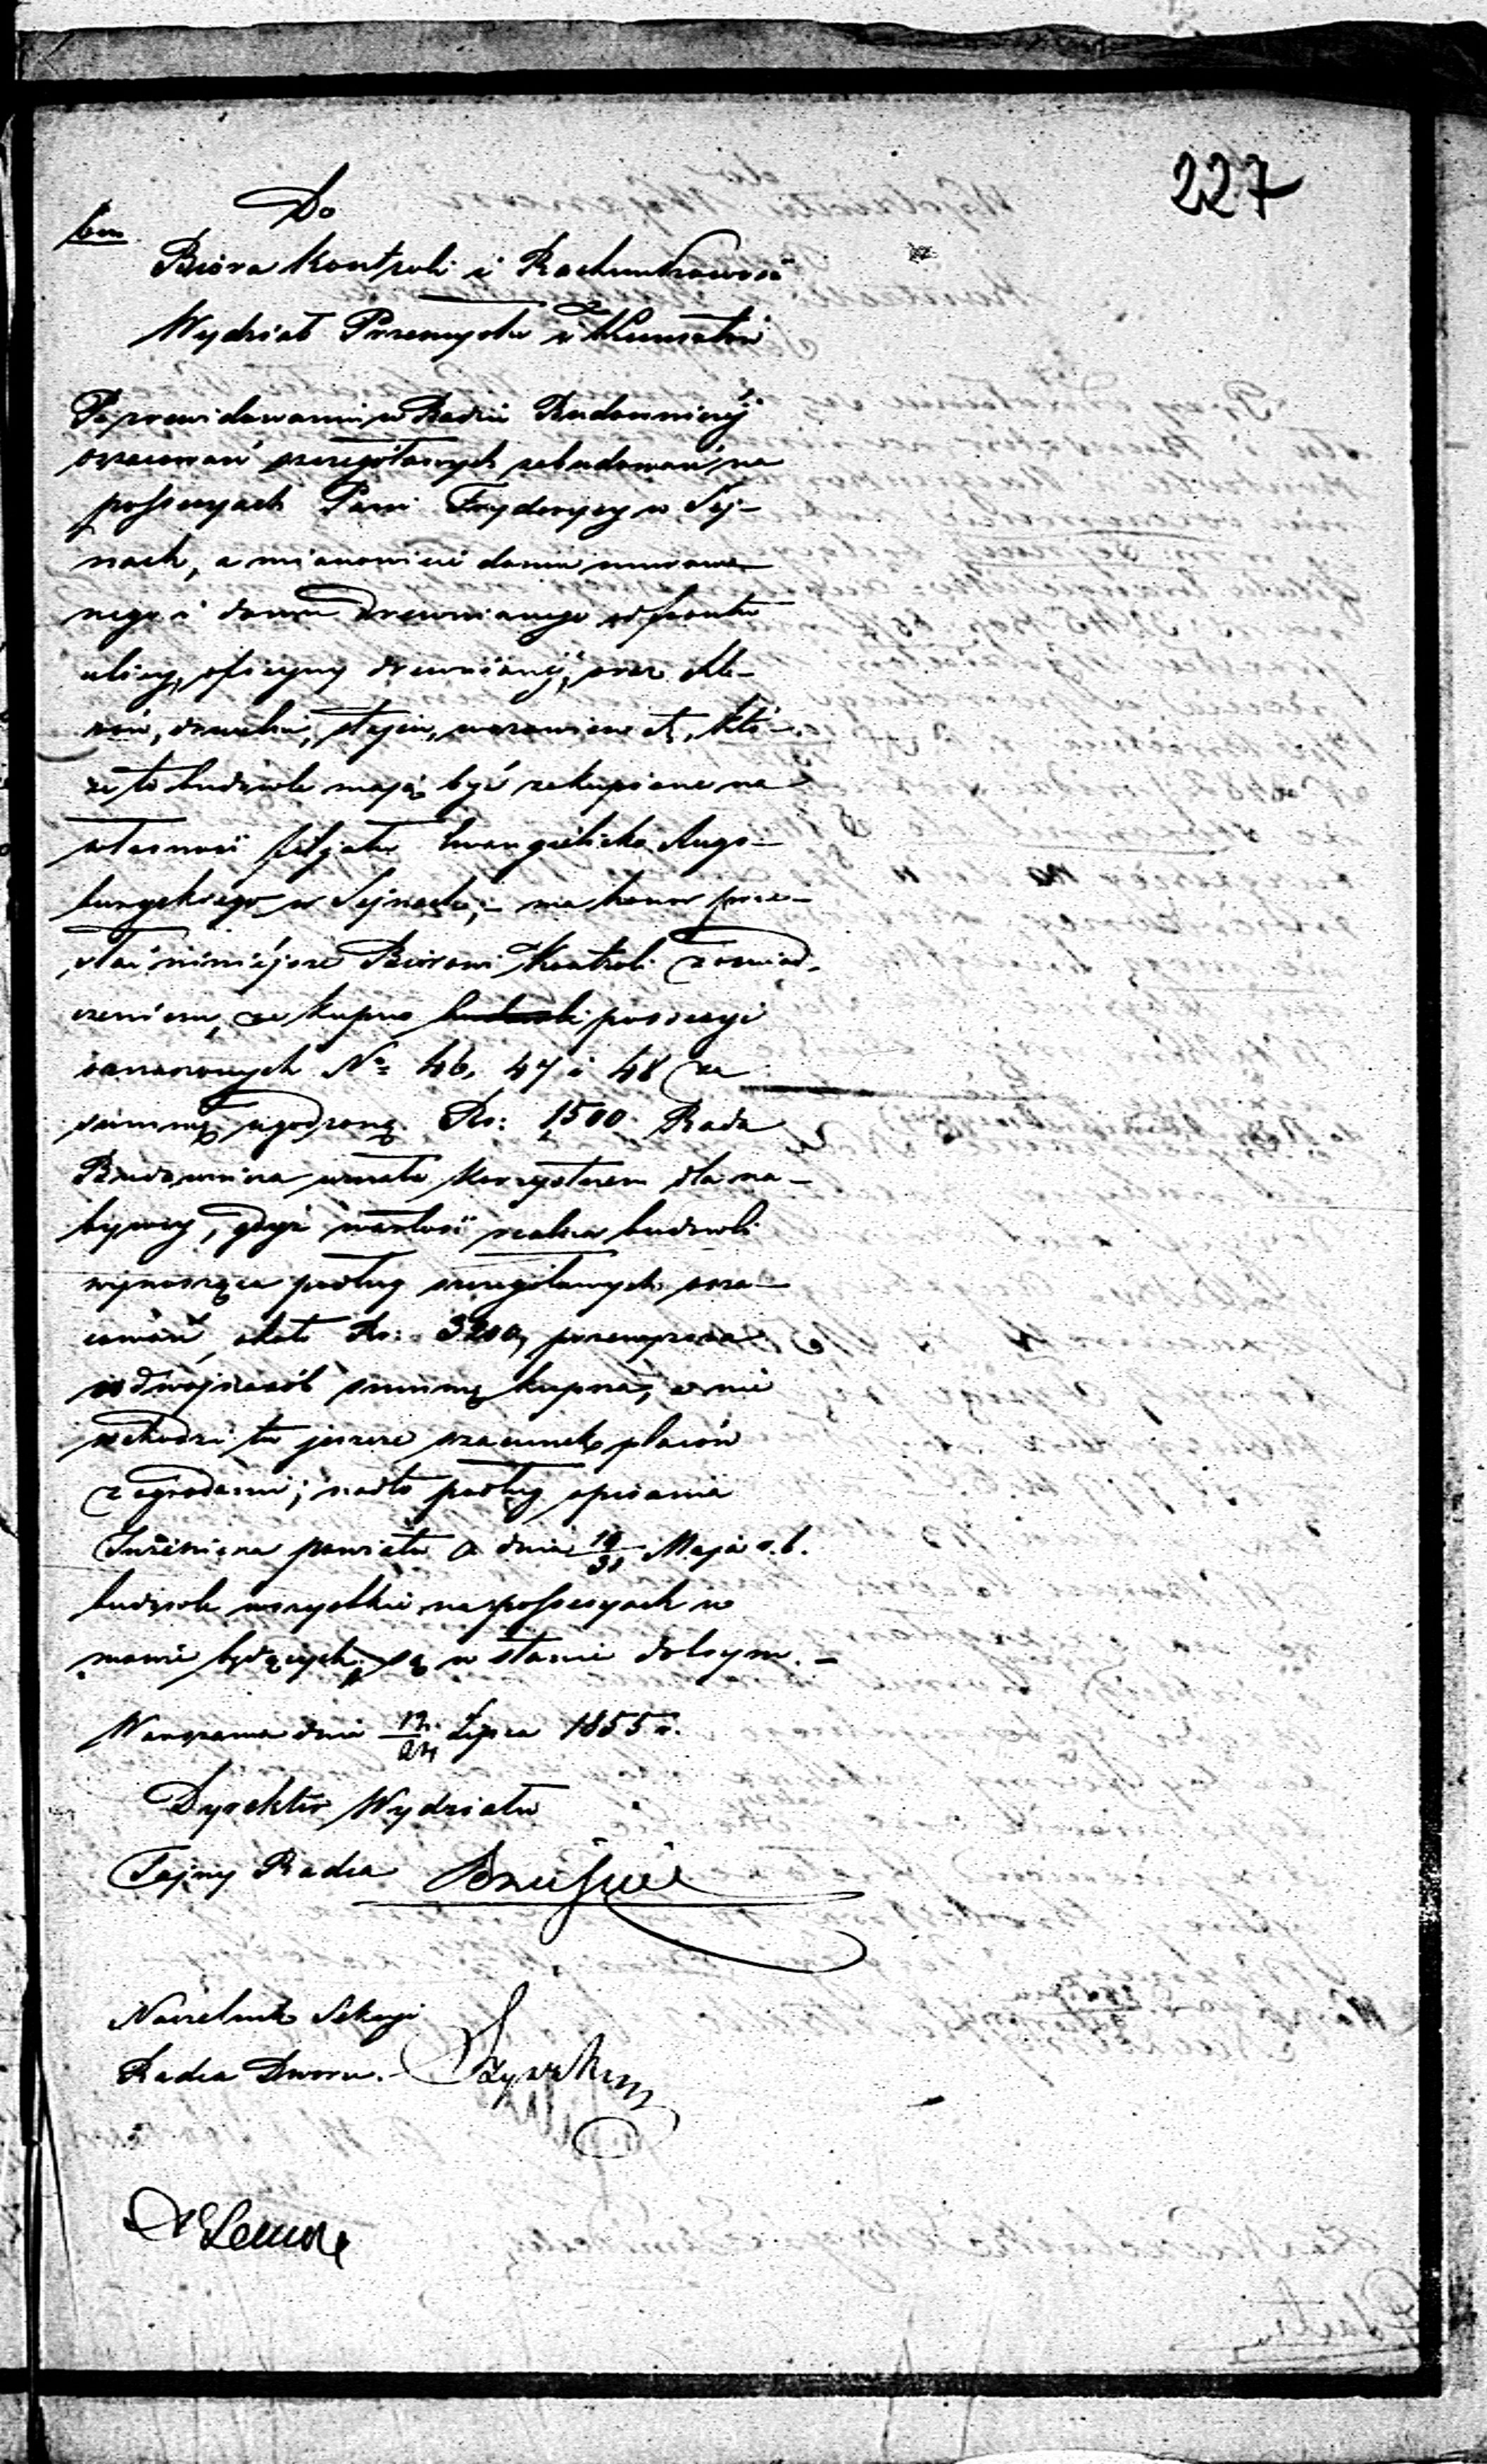 227
Do
Bióra Kontroli i Rachunkowości
Wydział Przemysłu i Kunsztów
Po zrewidowaniu w Radzie Budowniczéj
oszacowań szczegółowych zabudowań na
possessyach Pani Frydrycy w Sej-
nach, a mianowicie domu murowa-
nego i domu drewnianego od frontu
ulicy, oficyny drewnianéj, oraz skle-
pów, drwalni, stajen, wozowien etc, któ-
re to budowle mają być zakupione na
własność filjału Ewangielicko Augs-
burgskiego w Sejnach; – ma honor prze-
słać niniejsze Biorowi Kontroli z oświad-
czeniem, że kupno budowli possessyi
oznaczonych No 46, 47 i 48 za
summę ugodzoną Rs: 1500 Rada
Budownicza uznała korzystnem dla na-
bywcy, gdyż wartość realna budowli
wynosząca podług szczegółowych osza-
cowań około Rs: 3200, przenosi
w dwójnasób summę kupna, a nie
wchodzi tu jeszcze szacunek placów
z ogrodami; nadto podług opisania
Inżeniera powiatu z dnia 19/31 Maja r.b.
budowle wszystkie na possessyach w
mowie będących, są w stanie dobrym. –
Warszawa dnia 12/24 Lipca 1855 r.
Dyrektor Wydziału
Tajny Radca
Naczelnik Sekcyi
Radca Dworu.